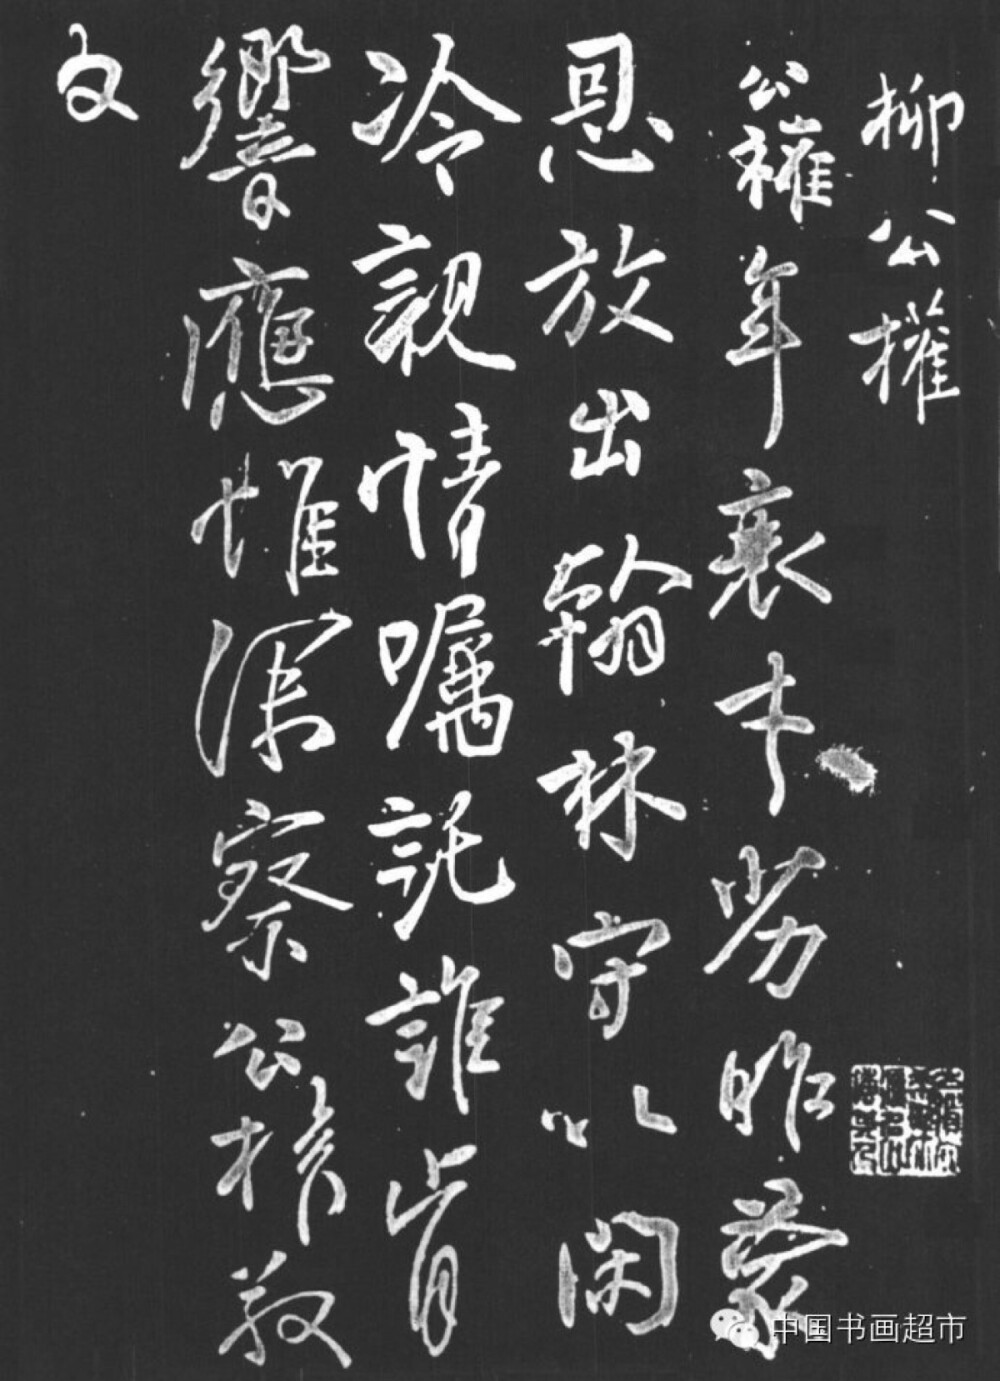 柳公權
公權年衰才劣昨蒙
恩放出翰林守以閑
冷親情囑託誰肯
響應惟深察公權敬
白
中国书画超市